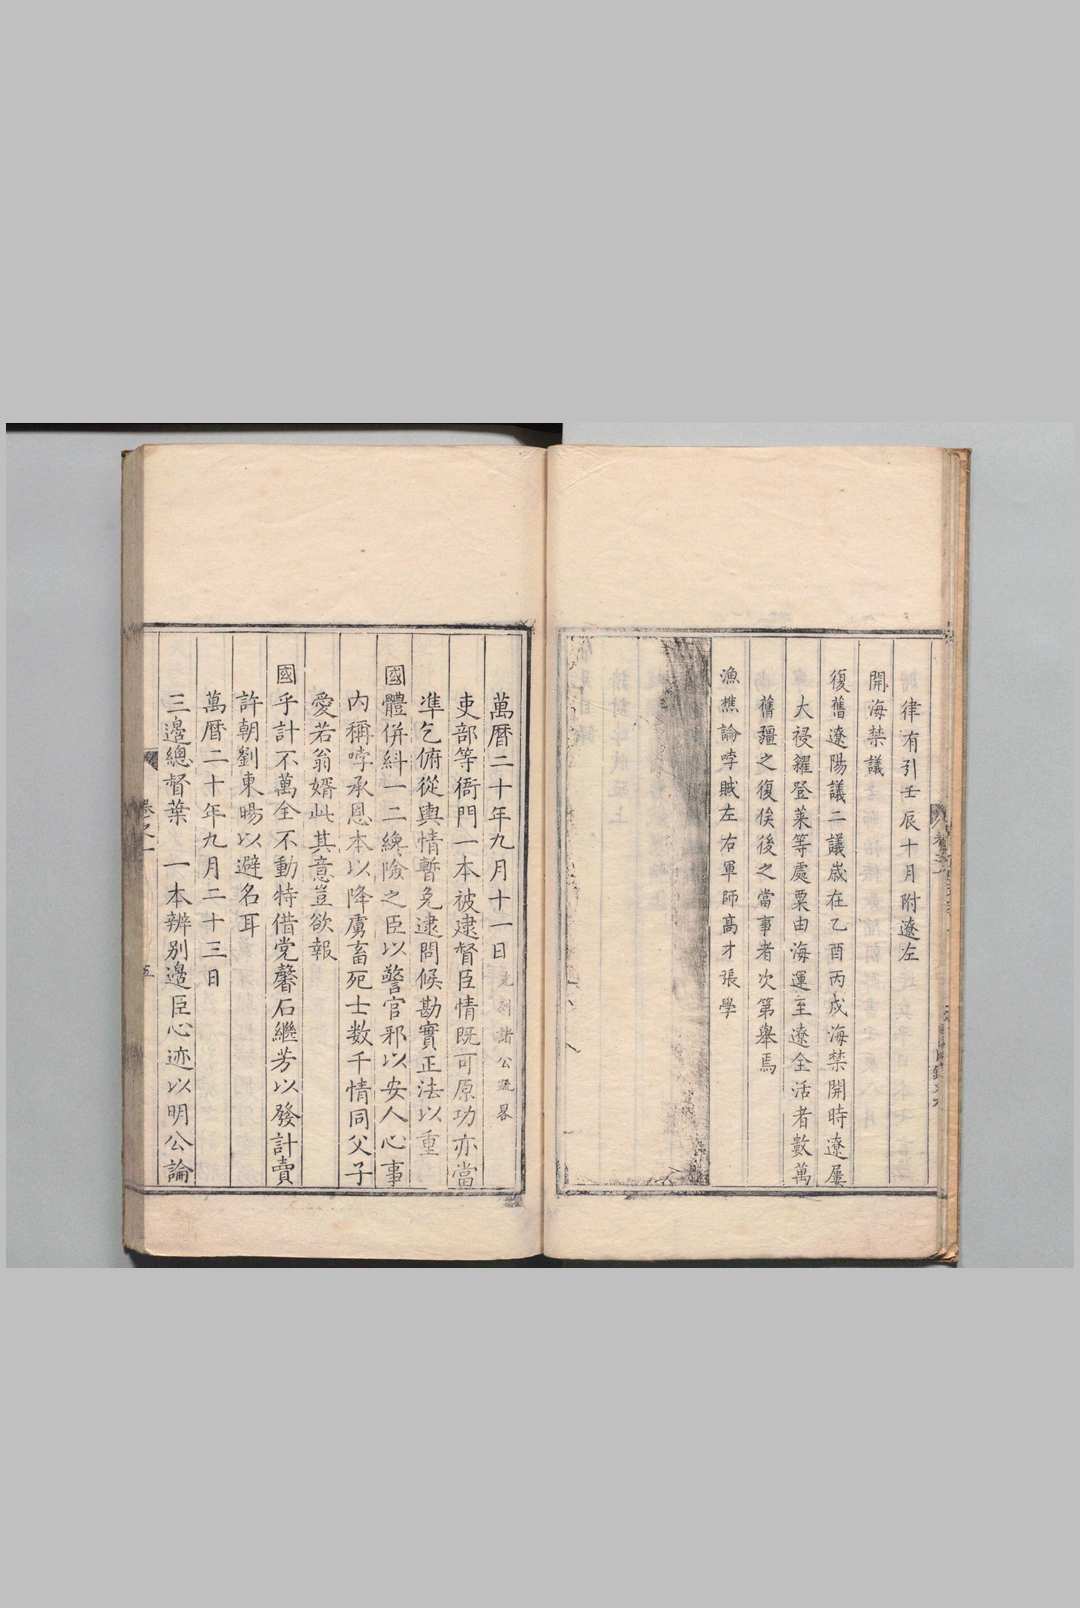 律有引壬辰十月附遼左
開海禁議
復舊遼陽議二議歲在乙酉丙戌海禁開時遼屢
大祲糴登萊等處粟由海運至遼全活者數萬
舊疆之復俟後之當事者次第舉焉
漁樵論哱賊左右軍師高才張學
萬曆二十年九月十一日
諸公疏畧
吏部等衙門一本被逮督臣情既可原功亦當
準乞俯從輿情暫免逮問候勘實正法以重
國體併糾一二纔險之臣以警官邪以安人心事
內稱哱承恩本以降虜畜死士數千情同父子
愛若翁婿此其意豈欲報
國乎計不萬全不動特借党馨石繼芳以發計賣
許朝劉東暘以避名耳
萬曆二十年九月二十三日
三邊總督葉 一本辨別邊臣心迹以明公論
卷之一
五